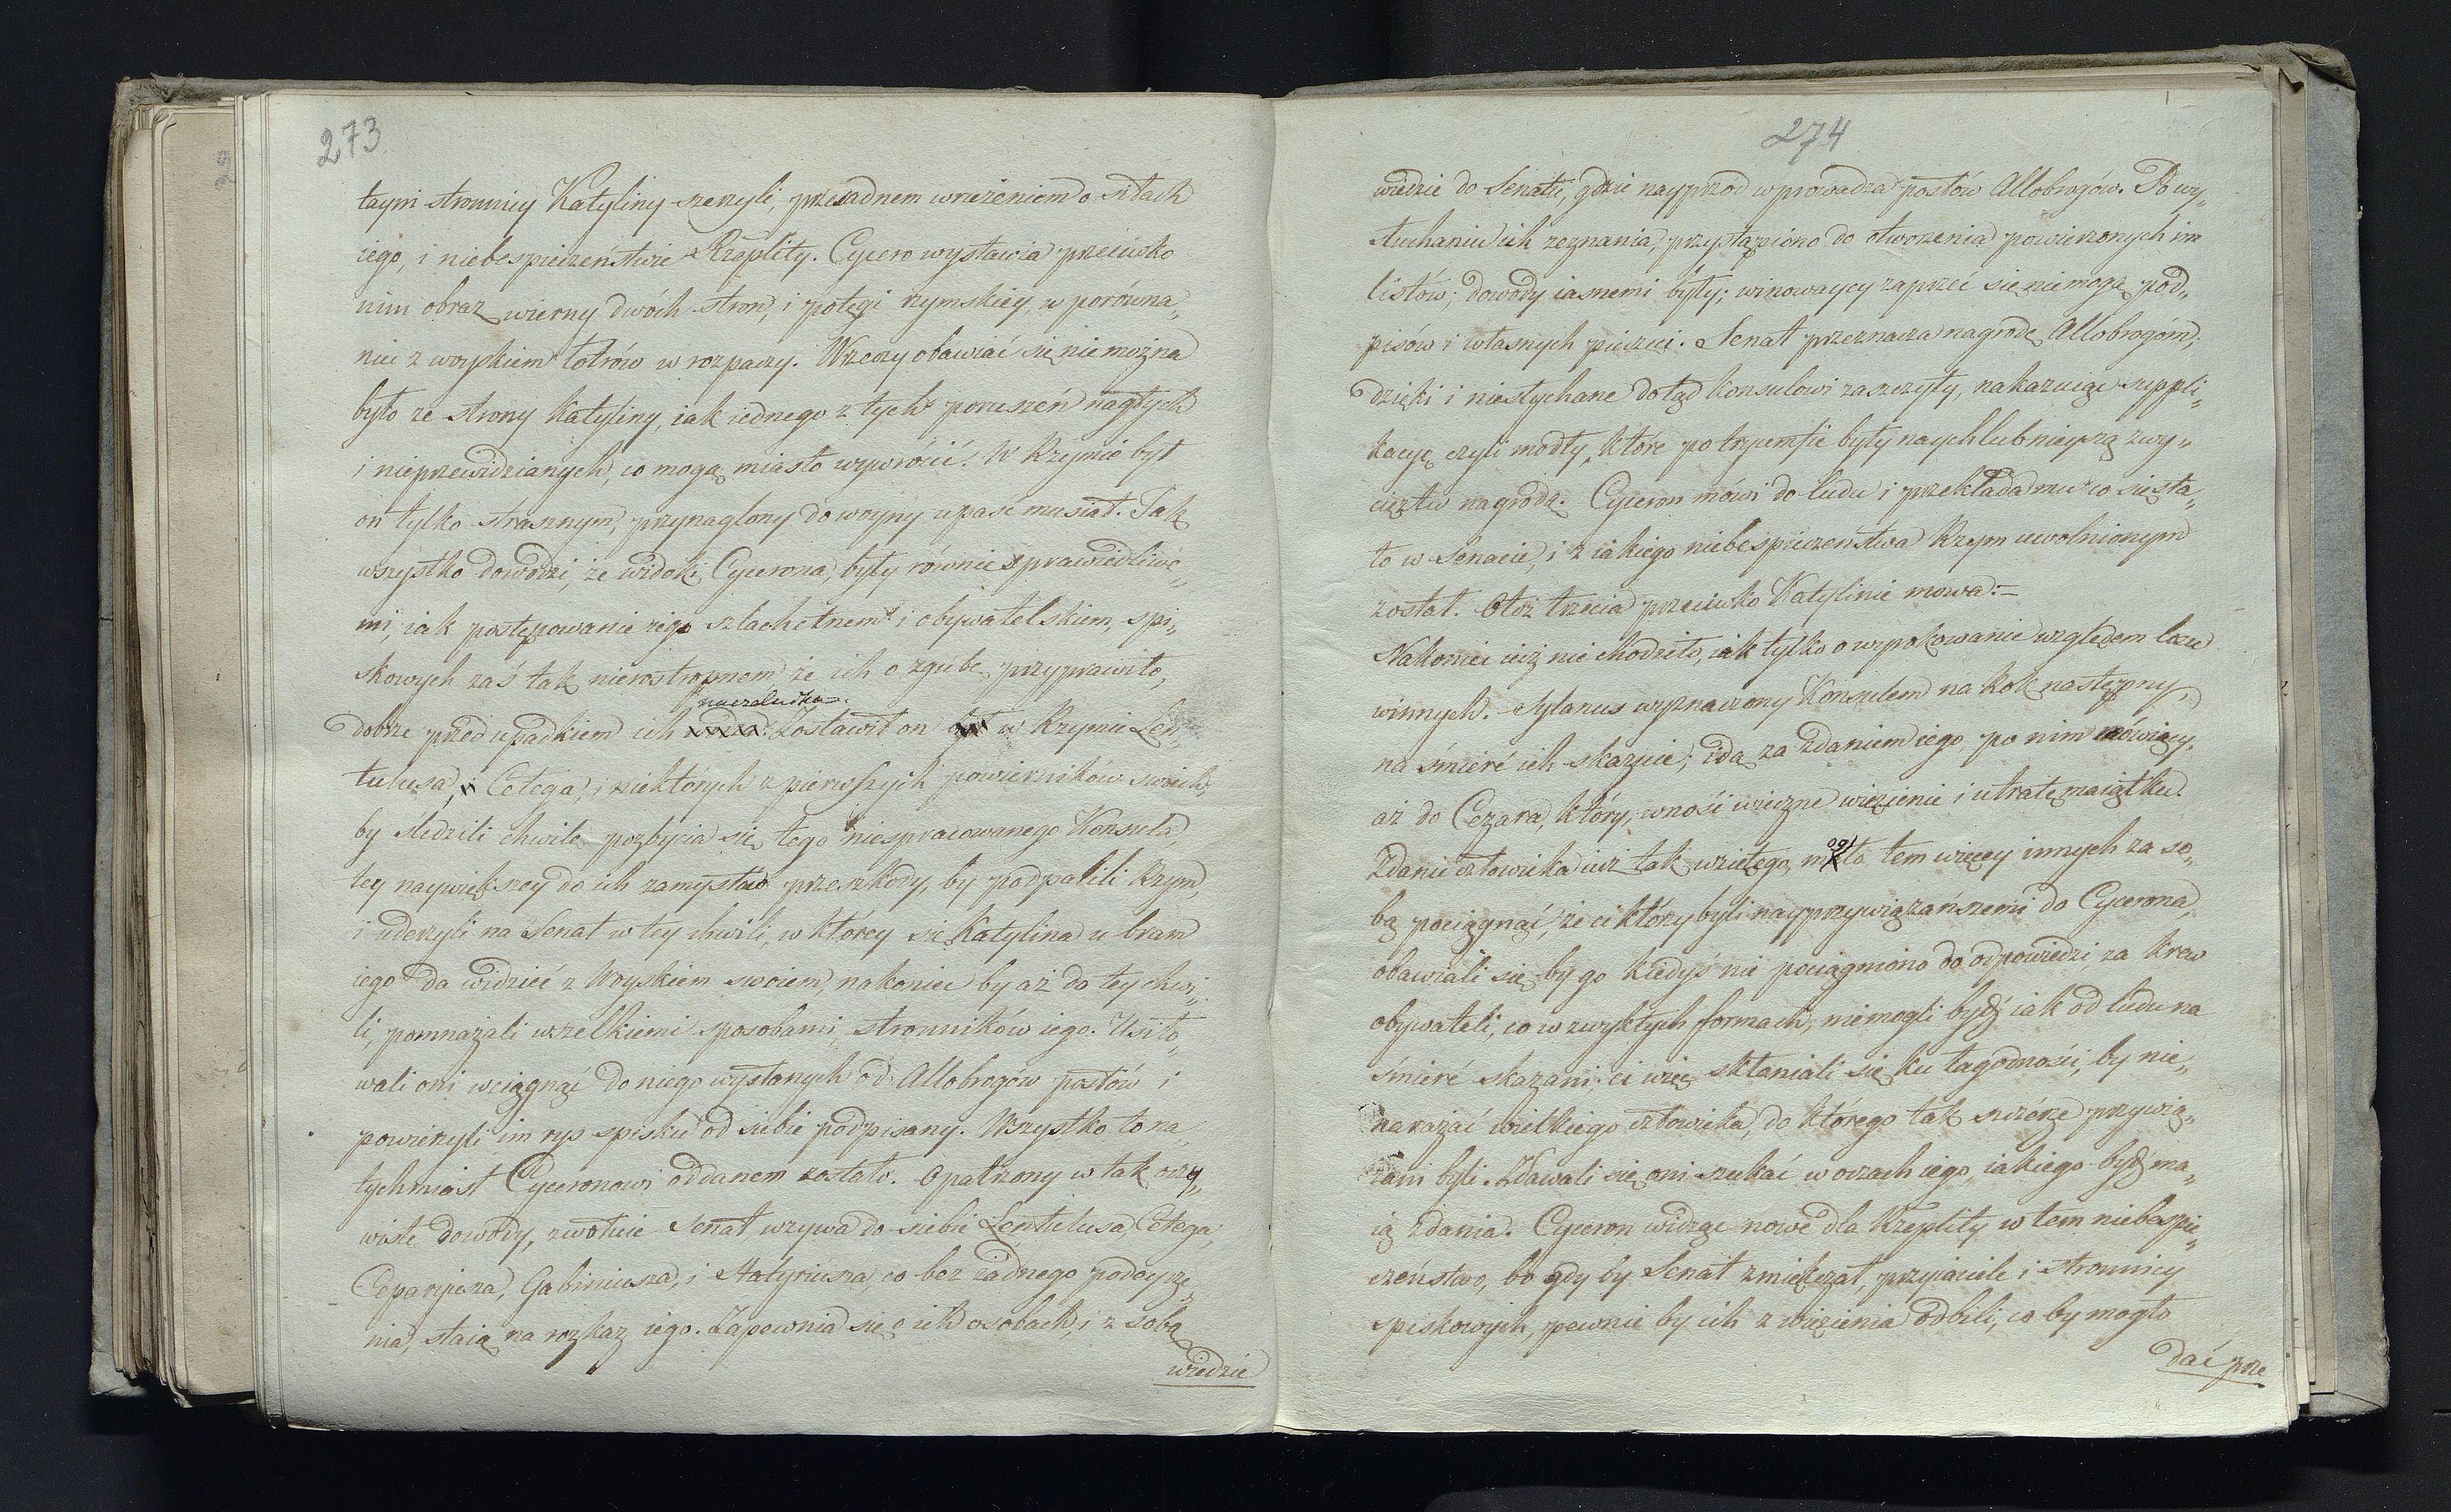 273
taym stronnicy Katyliny szerzyli, przesadnem wrażeniem o siłach
iego, i niebespieczeństwie Rzeplity. Cycero wystawia przeciwko
nim obraz wierny dwóch stron, i potęgi rzymskiey, w porówna„
niu z woyskiem łotrów w rozpaczy. Wrzeczy obawiać się nie można
było ze strony Katyliny, iak iednego z tych poruszeń nagłych
i nieprzewidzianych, co mogą miasto wywrócić. W Rzymie był
on tylko strasznym, przynaglony do woyny upaść musiał. Tak
wszystko dowodzi, że widoki Cycerona, były równie sprawiedliwe„
mi, iak postępowanie iego szlachetnem i obywatelskiem, spi„
skowych zaś tak nierostropnem że ich o zgubę przyprawiło,
naczelnika.
dobrze przed upadkiem ich Zostawił on w Rzymie Len„
tulusa, Cetega, i niektórych z pierwszych powierników swoich,
by śledzili chwilę pozbycia się tego niespracowanego Konsula,
tey naywiększey do ich zamysłów przeszkody, by podpalili Rzym,
i uderzyli na Senat w tey chwili, w którey się Katylina u bram
iego da widzieć z Woyskiem swoiem, nakoniec by aż do tey chwi„
li, pomnażali wszelkiemi sposobami, stronników iego. Usiło„
wali oni wciągnąć do niego wysłanych od Allobrogów posłów i
powierzyli im rys spisku od siebie podpisany. Wszystko to na„
tychmiast Cyceronowi oddanem zostało. Opatrzony w tak oczy„
wiste dowody, zwołuie Senat, wzywa do siebie Lentulusa, Cetega,
Ceparyusza, Gabiniusza, i Statyriusza, co bez żadnego podeyrze„
nia, staią na rozkaz iego. Zapewnia się o ich osobach, i z sobą
wiedzie
274
wiedzie do Senatu, gdzie nayprzod wprowadza posłów Allobrogow. Po wy„
słuchaniu ich zeznania, przystąpiono do otworzenia powierzonych im
listów; dowody iasnemi były; winowaycy zaprzeć się nie mogą pod„
pisów i własnych pieczęci. Senat przeznacza nagrodę Allobrogóm,
dzięki i niesłychane dotąd Konsulowi zaszczyty, nakazuiąc suppli„
kacyę czyli modły, które po tryumfie były naychlubnieyszą zwy„
cięztw nagrodą. Cyceron mówi do ludu i przekłada mu co się sta„
ło w Senacie, i z iakiego niebespieczenstwa Rzym uwolnionym
został. Otóż trzecia przeciwko Katylinie mowa:=
Nakoniec iuż nie chodziło, iak tylko o wyrokowanie względem losu
winnych. Sylanus wyznaczony Konsulem na Rok następny,
na śmierć ich skazuie; idą za zdaniem iego, po nim mówiący,
aż do Cezara, który, wnosi wieczne więzienie i utratę maiątku.
Zdanie człowieka iuż tak wziętego, mogło tem więcey innych za so„
bą pociągnąć, że ci którzy byli nayprzywiązańszemi do Cycerona,
obawiali się by go kiedyś nie pociągniono do odpowiedzi za krew
obywateli, co w zwykłych formach, niemogli bydź iak od ludu na
śmierć skazani; ci więc skłaniali się ku łagodności, by nie„
narażać wielkiego człowieka, do którego tak szczérze przywią„
zani byli. Zdawali się oni szukać w oczach iego, iakiego bydź ma„
ią zdania. Cyceron widząc nowe dla Rzeplity w tem niebespie„
czeństwo, bo gdy by Senat zmiękczał, przyiaciele i stronnicy
spiskowych, pewnie by ich z więzienia odbili, co by mogło
dać prze